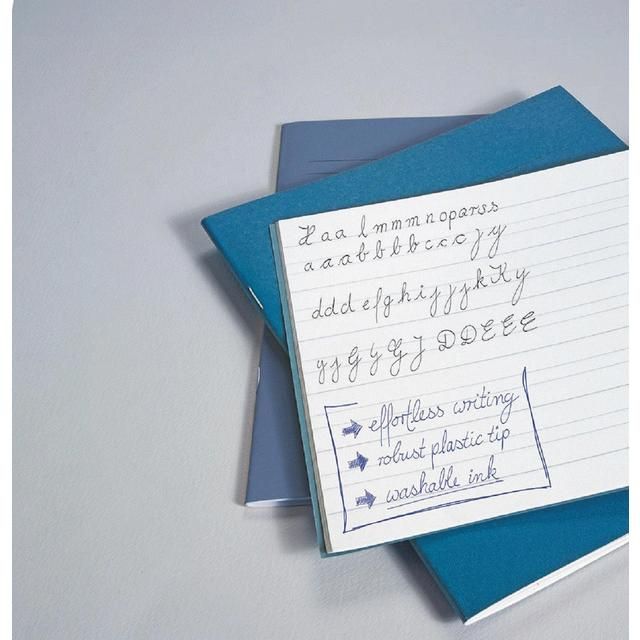 H a a l m m m n o p a r s s
a a a b b b b c c c y y
d d d e f g h i j j j k K y
g j G y G J D D E E E
➡ effortless writing
➡ robust plastic tip
➡ washable ink